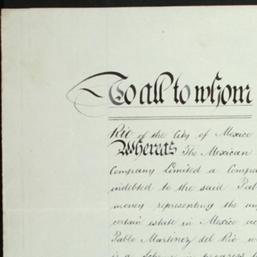 To all to whom
Rio of the City of Mexico
Whereas The Mexican
Company Limited a Compa
indebted to the said Pab
money representing the
certain estate in Mexico
Pablo Martinez del Rio
is a